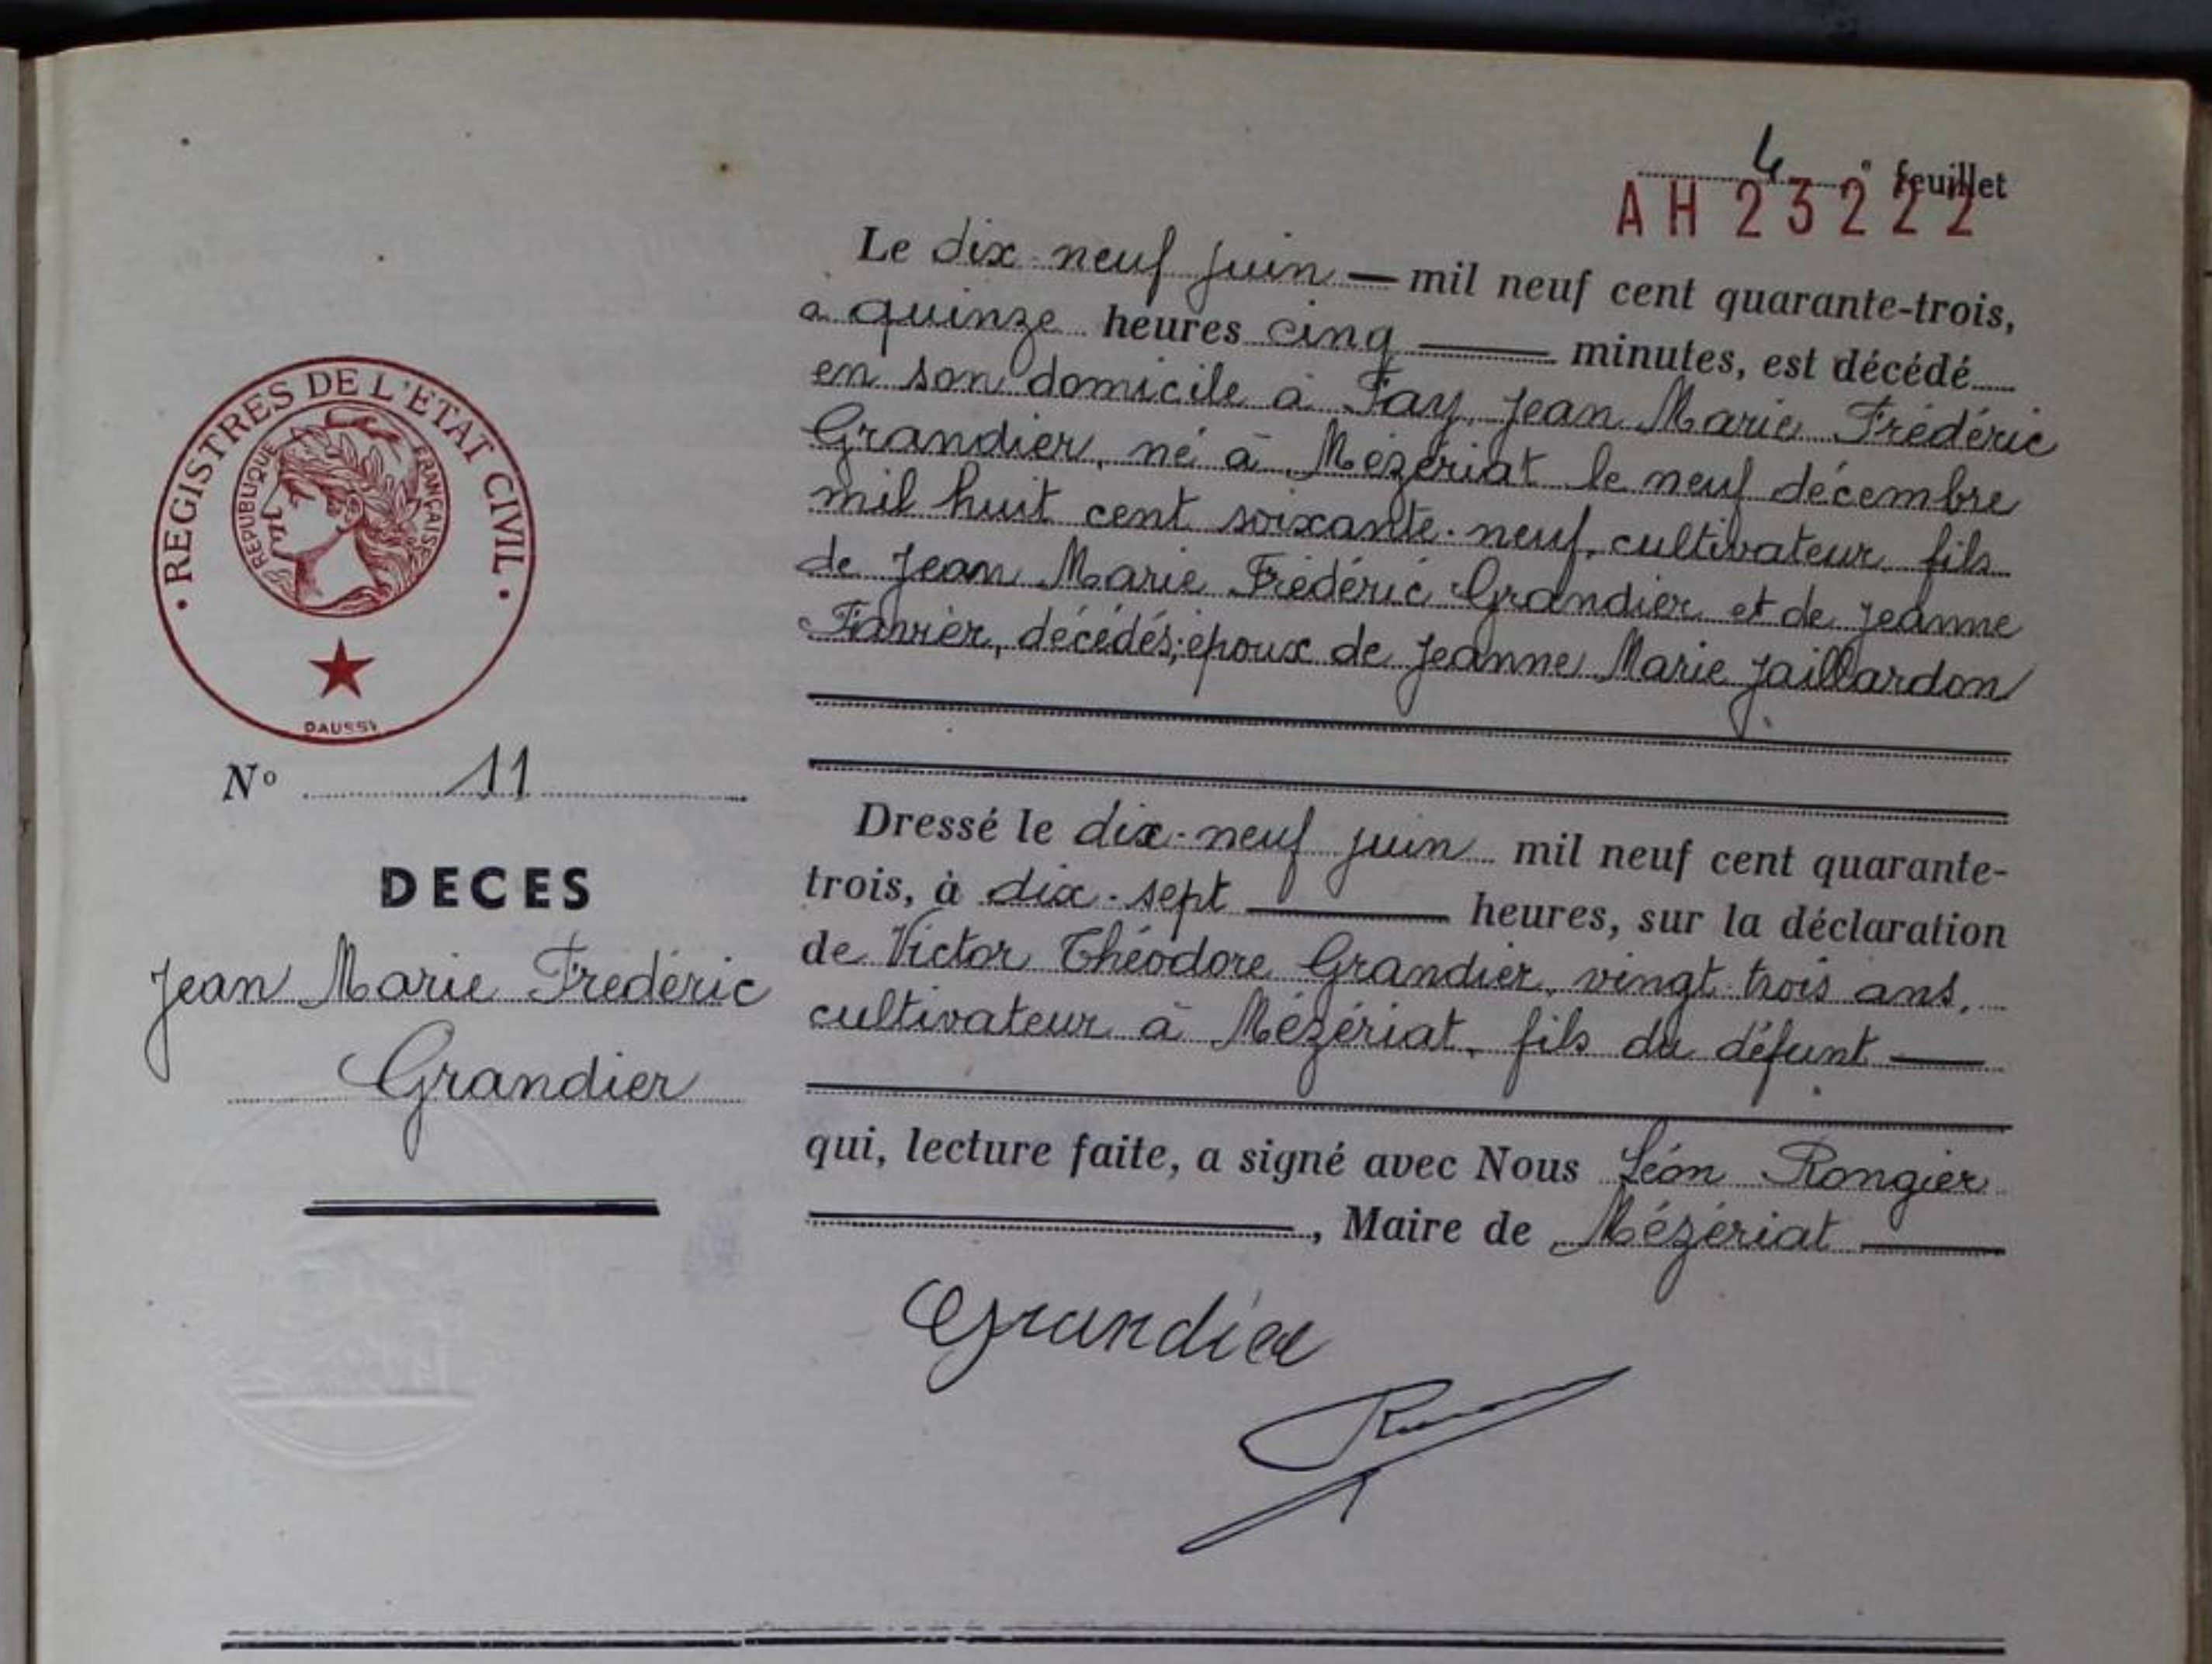 4e feuillet
AH 23222
REGISTRES DE L'ETAT CIVIL
REPUBLIQUE FRANÇAISE
Le dix-neuf juin — mil neuf cent quarante-trois,
à quinze heures cinq — minutes, est décédé
en son domicile à Fay, Jean Marie Frédéric
Grandier, né à Mézériat le neuf décembre
mil huit cent soixante-neuf, cultivateur, fils
de Jean Marie Frédéric Grandier et de Jeanne
décédés; époux de Jeanne Marie Jaillardon
N° 11
DECES
Jean Marie Frédéric
Grandier
Dressé le dix-neuf juin mil neuf cent quarante-
trois, à dix-sept — heures, sur la déclaration
de Victor Théodore Grandier, vingt-trois ans,
cultivateur à Mézériat, fils du défunt —
qui, lecture faite, a signé avec Nous Léon Rongier
, Maire de Mézériat —
Grandier